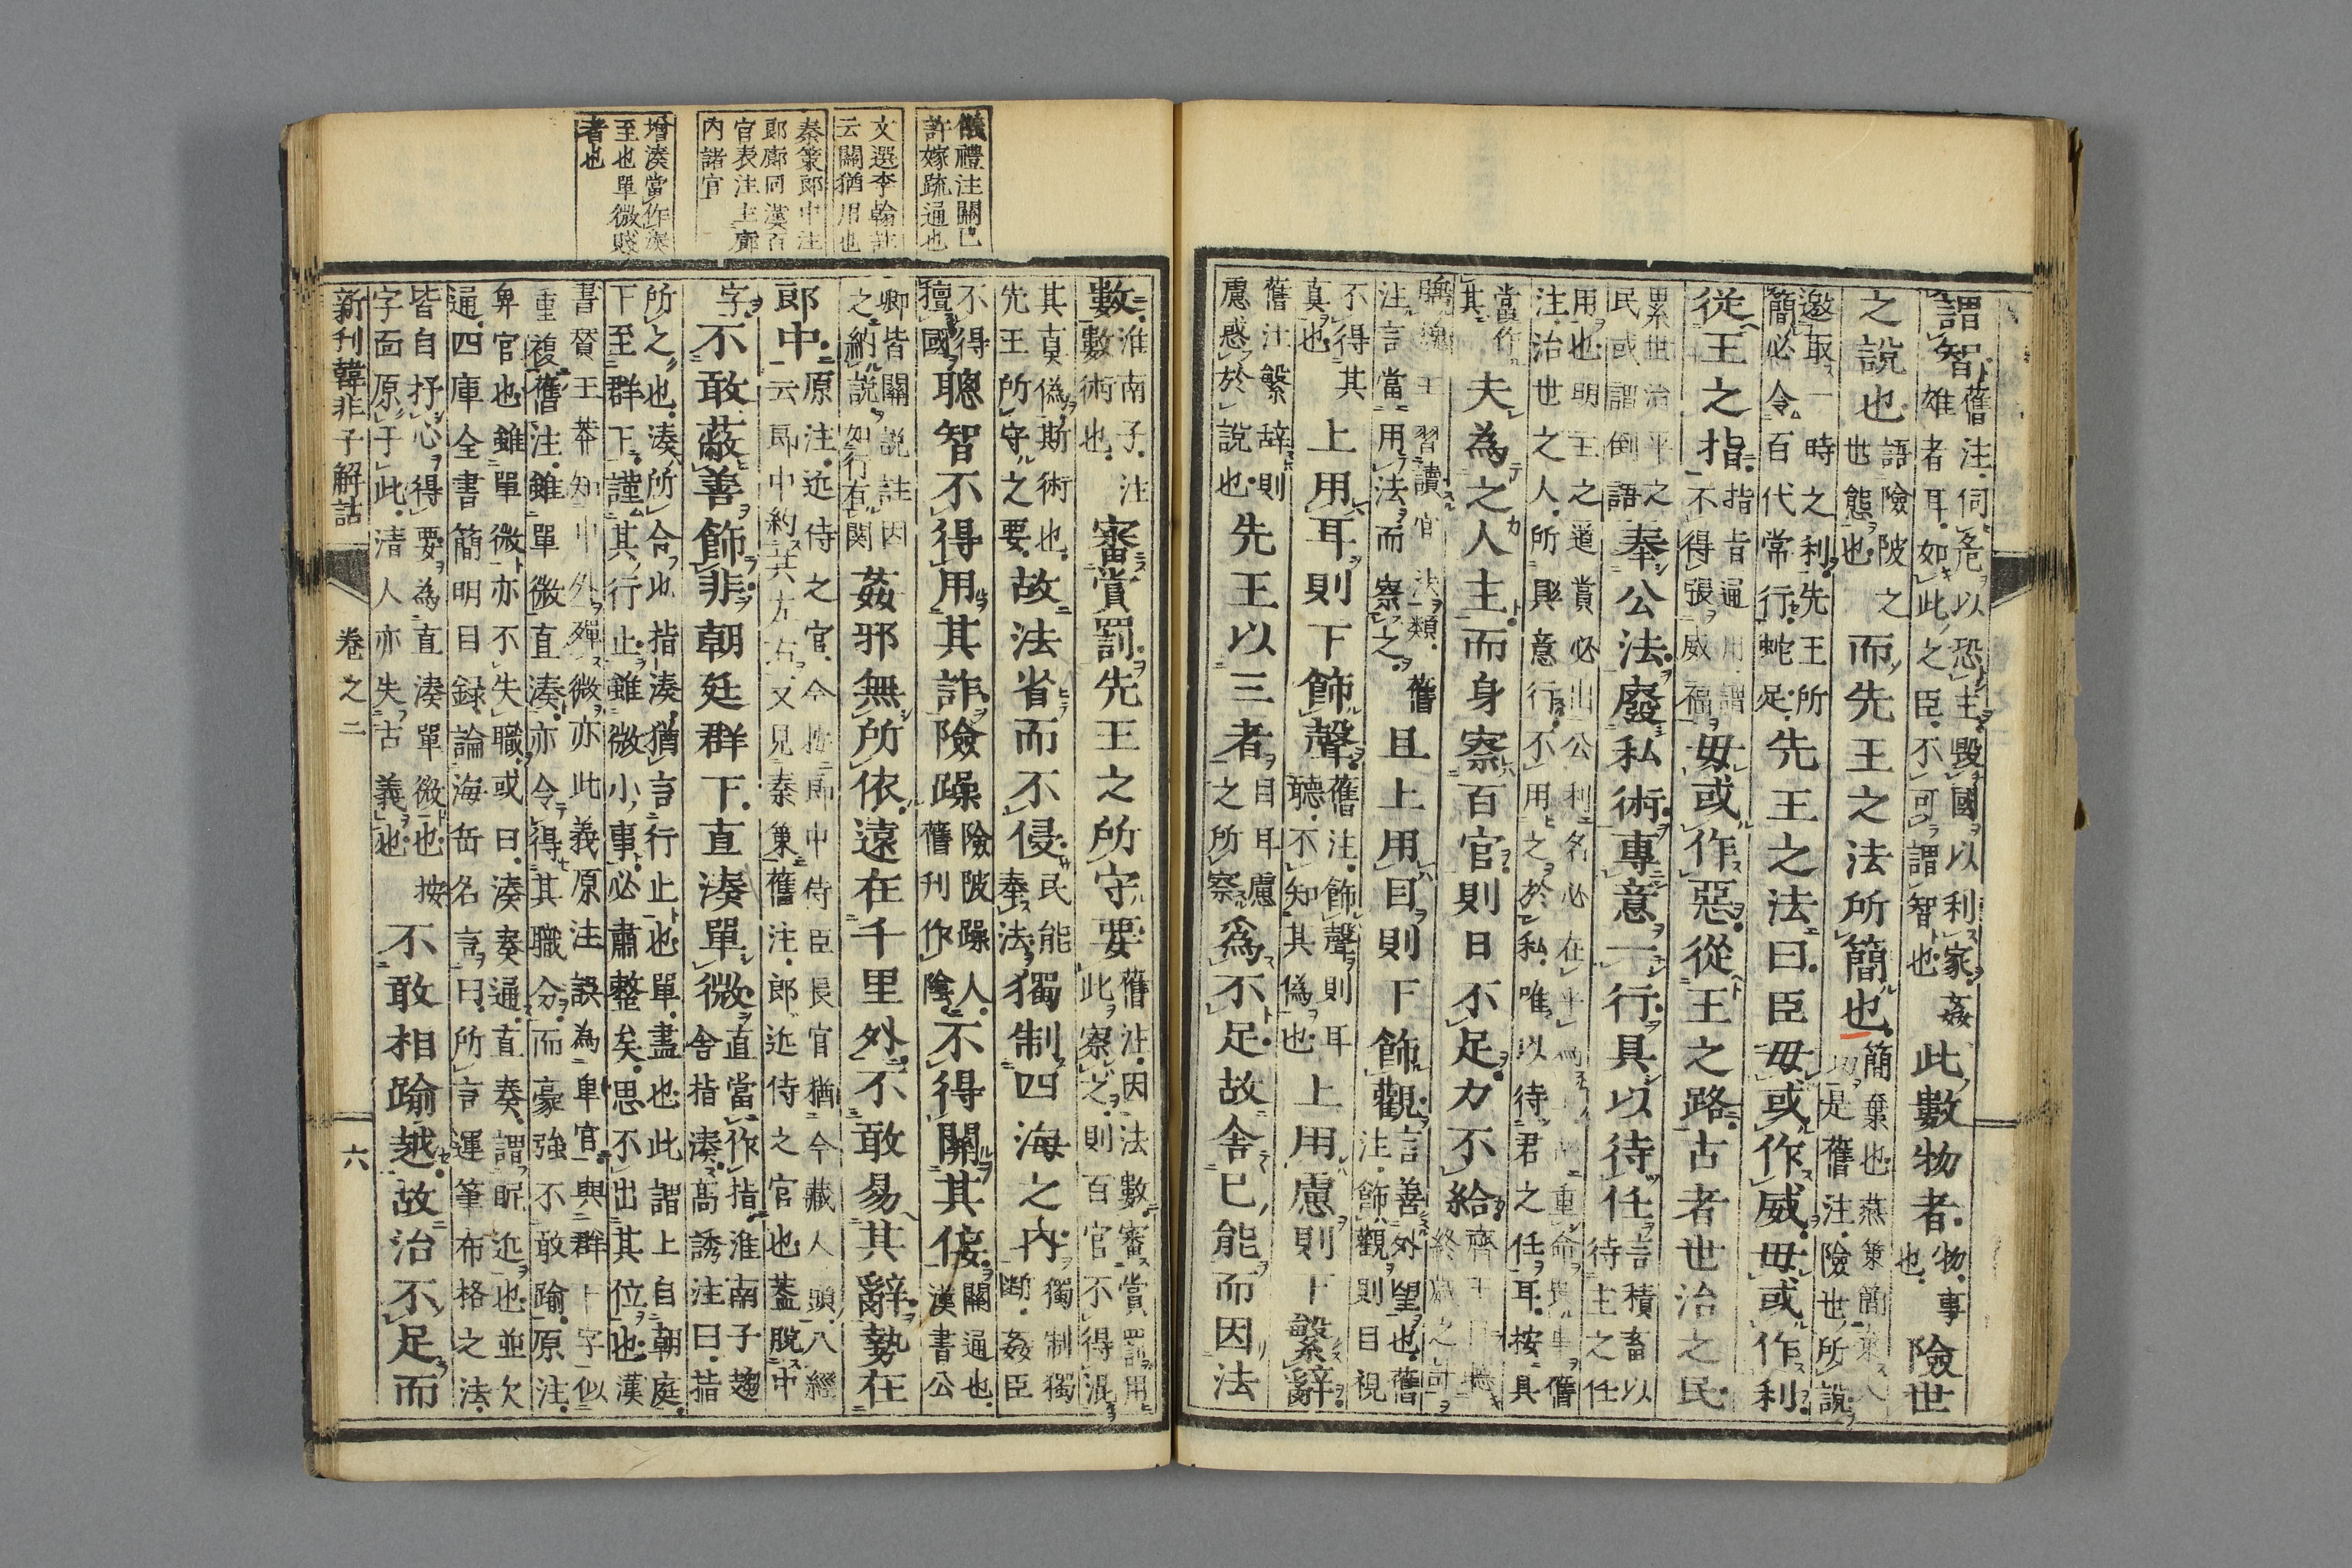 謂智舊注伺危以恐主毀國以利家姦雄者耳如此之臣不可謂智也此數物者物事也險世
之說也語險陂之世態也而先王之法所簡也簡棄也燕策簡棄是舊注險世所說
邀取一時之利先王所簡必令百代常行蛇足先王之法曰臣毋或作威毋或作利
從王之指指旨通用謂不得張威福毋或作惡從王之路古者世治之民
累世治平之民或謂倒語奉公法廢私術專意一行具以待任言積畜以待主之任
用也明主之道賞必出公利名必在乎為上重命畢事舊注治世之人所具意行不用之於私唯以待君之任耳按具
當作其夫為人主而身察百官則日不足力不給齊
王習讀官法類舊注言當用法而察之且上用目則下飾觀言善外望也舊注飾觀則目視
不得其真也上用耳則下飾聲舊注飾聲則耳聽不知其偽也上用慮則下繁辭
舊注繁辭則慮惑於說也先王以三者目耳慮之所察為不足故舍已能而因法
數淮南子注數術也審賞罰先王之所守要舊注因法數審賞罰用此察之則百官不得混
其真偽斯術也先王所守之要故法省而不侵民能奉法獨制四海之內獨制獨斷姦臣
不得擅國聰智不得用其詐險躁險陂躁人舊刊作陰不得關其佞關通也漢書公
卿皆關說註因之納說如行有関姦邪無所依遠在千里外不敢易其辭勢在
郎中原注近侍之官今按郎中侍臣長官猶今藏人頭八經一云郎中約其左右又見秦策舊注郎近侍之官也蓋脫中
字不敢蔽善飾非朝廷群下直湊單微直當作指淮南子趨舍指湊高誘注曰指
所之也湊所合也指湊猶言行止也單盡也此謂上自朝庭下至群下謹其行止雖微小事必肅整矣思不出其位也漢
書贊王莽知中外殫微亦此義原注誤為卑官與群下字似重複舊注雖單微直湊亦令得其職分而豪強不敢踰原注
卑官也雖單微亦不失職或曰湊奏通直奏謂昵近也並欠通四庫全書簡明目録論海岳名言曰所言運筆布格之法
皆自抒心得要為直湊單微也按字面原于此清人亦失古義也不敢相踰越故治不足而
新刊韓非子解詁
卷之二
六
儀禮注關巳
許嫁疏通也
文選李翰註
云關猶用也
秦策郎中注
郎廊同漢百
官表注主廊
內諸官
増湊當作湊
至也單微賤
者也